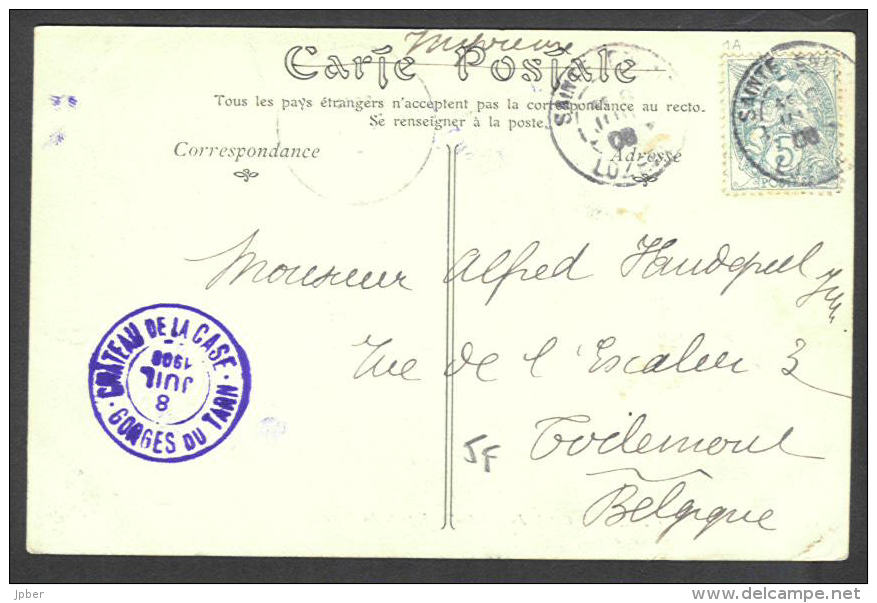 Imprimé
Carte Postale
1A
Tous les pays étrangers n'acceptent pas la correspondance au recto.
Se renseigner à la poste.
Correspondance
Adresse
SAINTE
JUIL
08
LOZ
SAINTE ENI
08
5
POSTES
Monsieur Alfred
Rue de l'Escalier 3
5F
Tirlemont
Belgique
CHÂTEAU DE LA CASE
8
JUIL
1908
GORGES DU TARN
jpber
www.delcampe.net